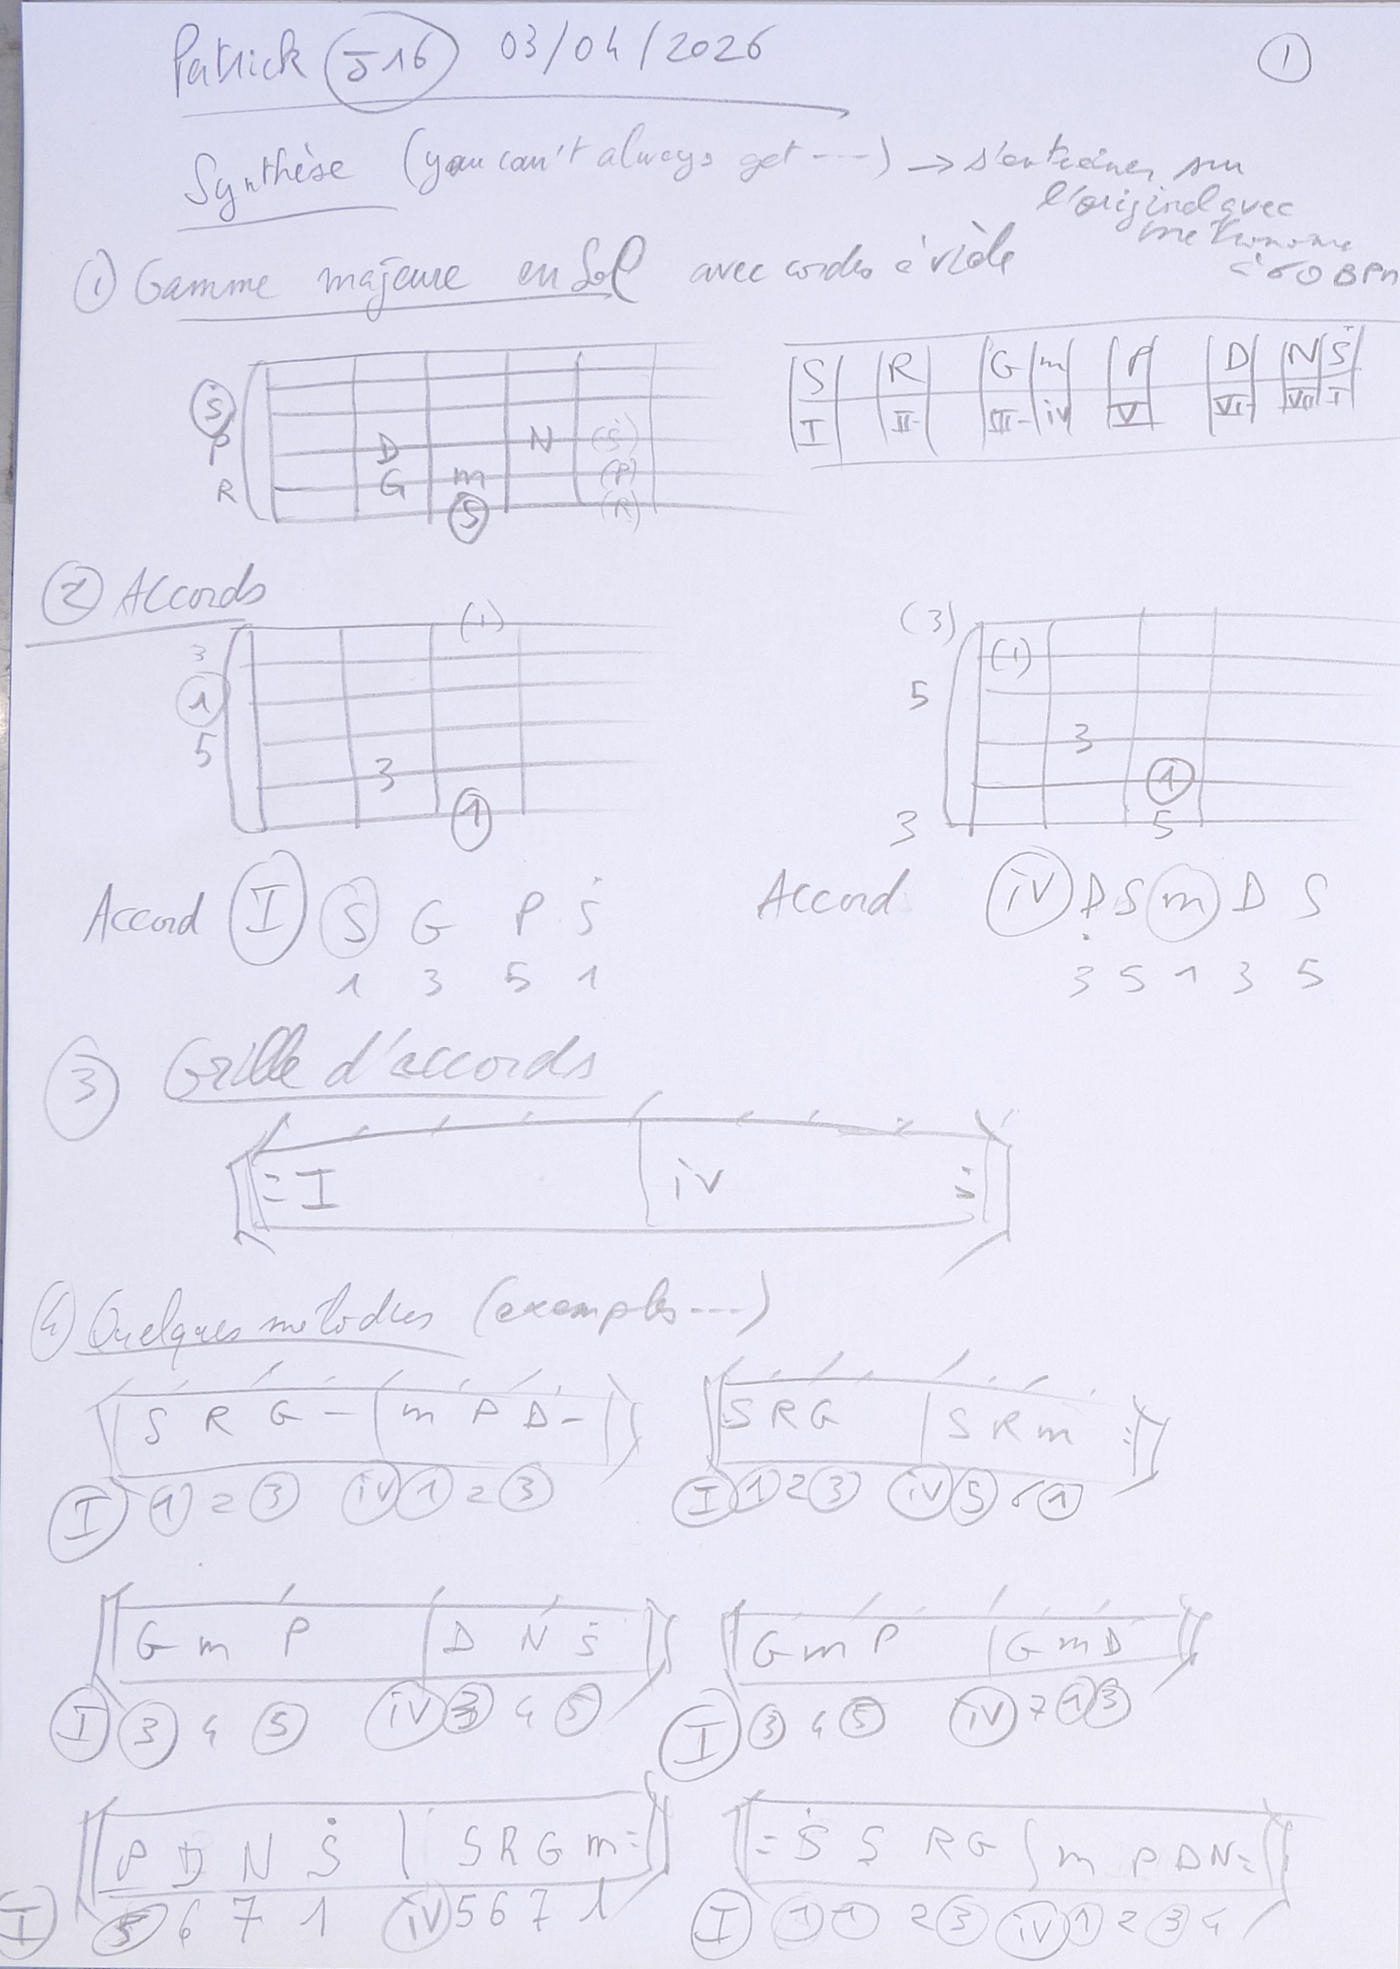 Patrick J16 03/04/2026
1
Synthèse (you can't always get ---) → s'entraîner sur
l'original avec
métronome
à 60 BPM
1 Gamme majeure en Sol avec cordes à vide
S R G m P D N Ṡ
I II- III- iv V VI- VII I
S
P D N (S)
R G m (P)
S (R)
2 Accords
(1)
3
1
5
3
1
(3)
(1)
5
3
1
3 5
Accord I S G P Ṡ
1 3 5 1
Accord iv Ḍ S m D S
3 5 1 3 5
3 Grille d'accords
: I iv :
4) Quelques mélodies (exemples ---)
S R G - | m P D -
I 1 2 3 iv 1 2 3
S R G | S R m :
I 1 2 3 iv 5 6 1
G m P | D N Ṡ
I 3 4 5 iv 3 4 5
G m P | G m D
I 3 4 5 iv 7 1 3
P D N Ṡ | S R G m :
I 5 6 7 1 iv 5 6 7 1
: Ṡ S R G | m P D N :
I 1 1 2 3 iv 1 2 3 4